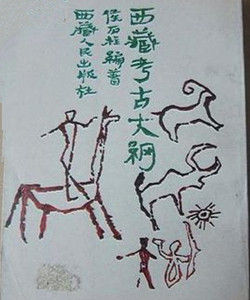 西藏考古大纲
侯石柱编著
西藏人民出版社